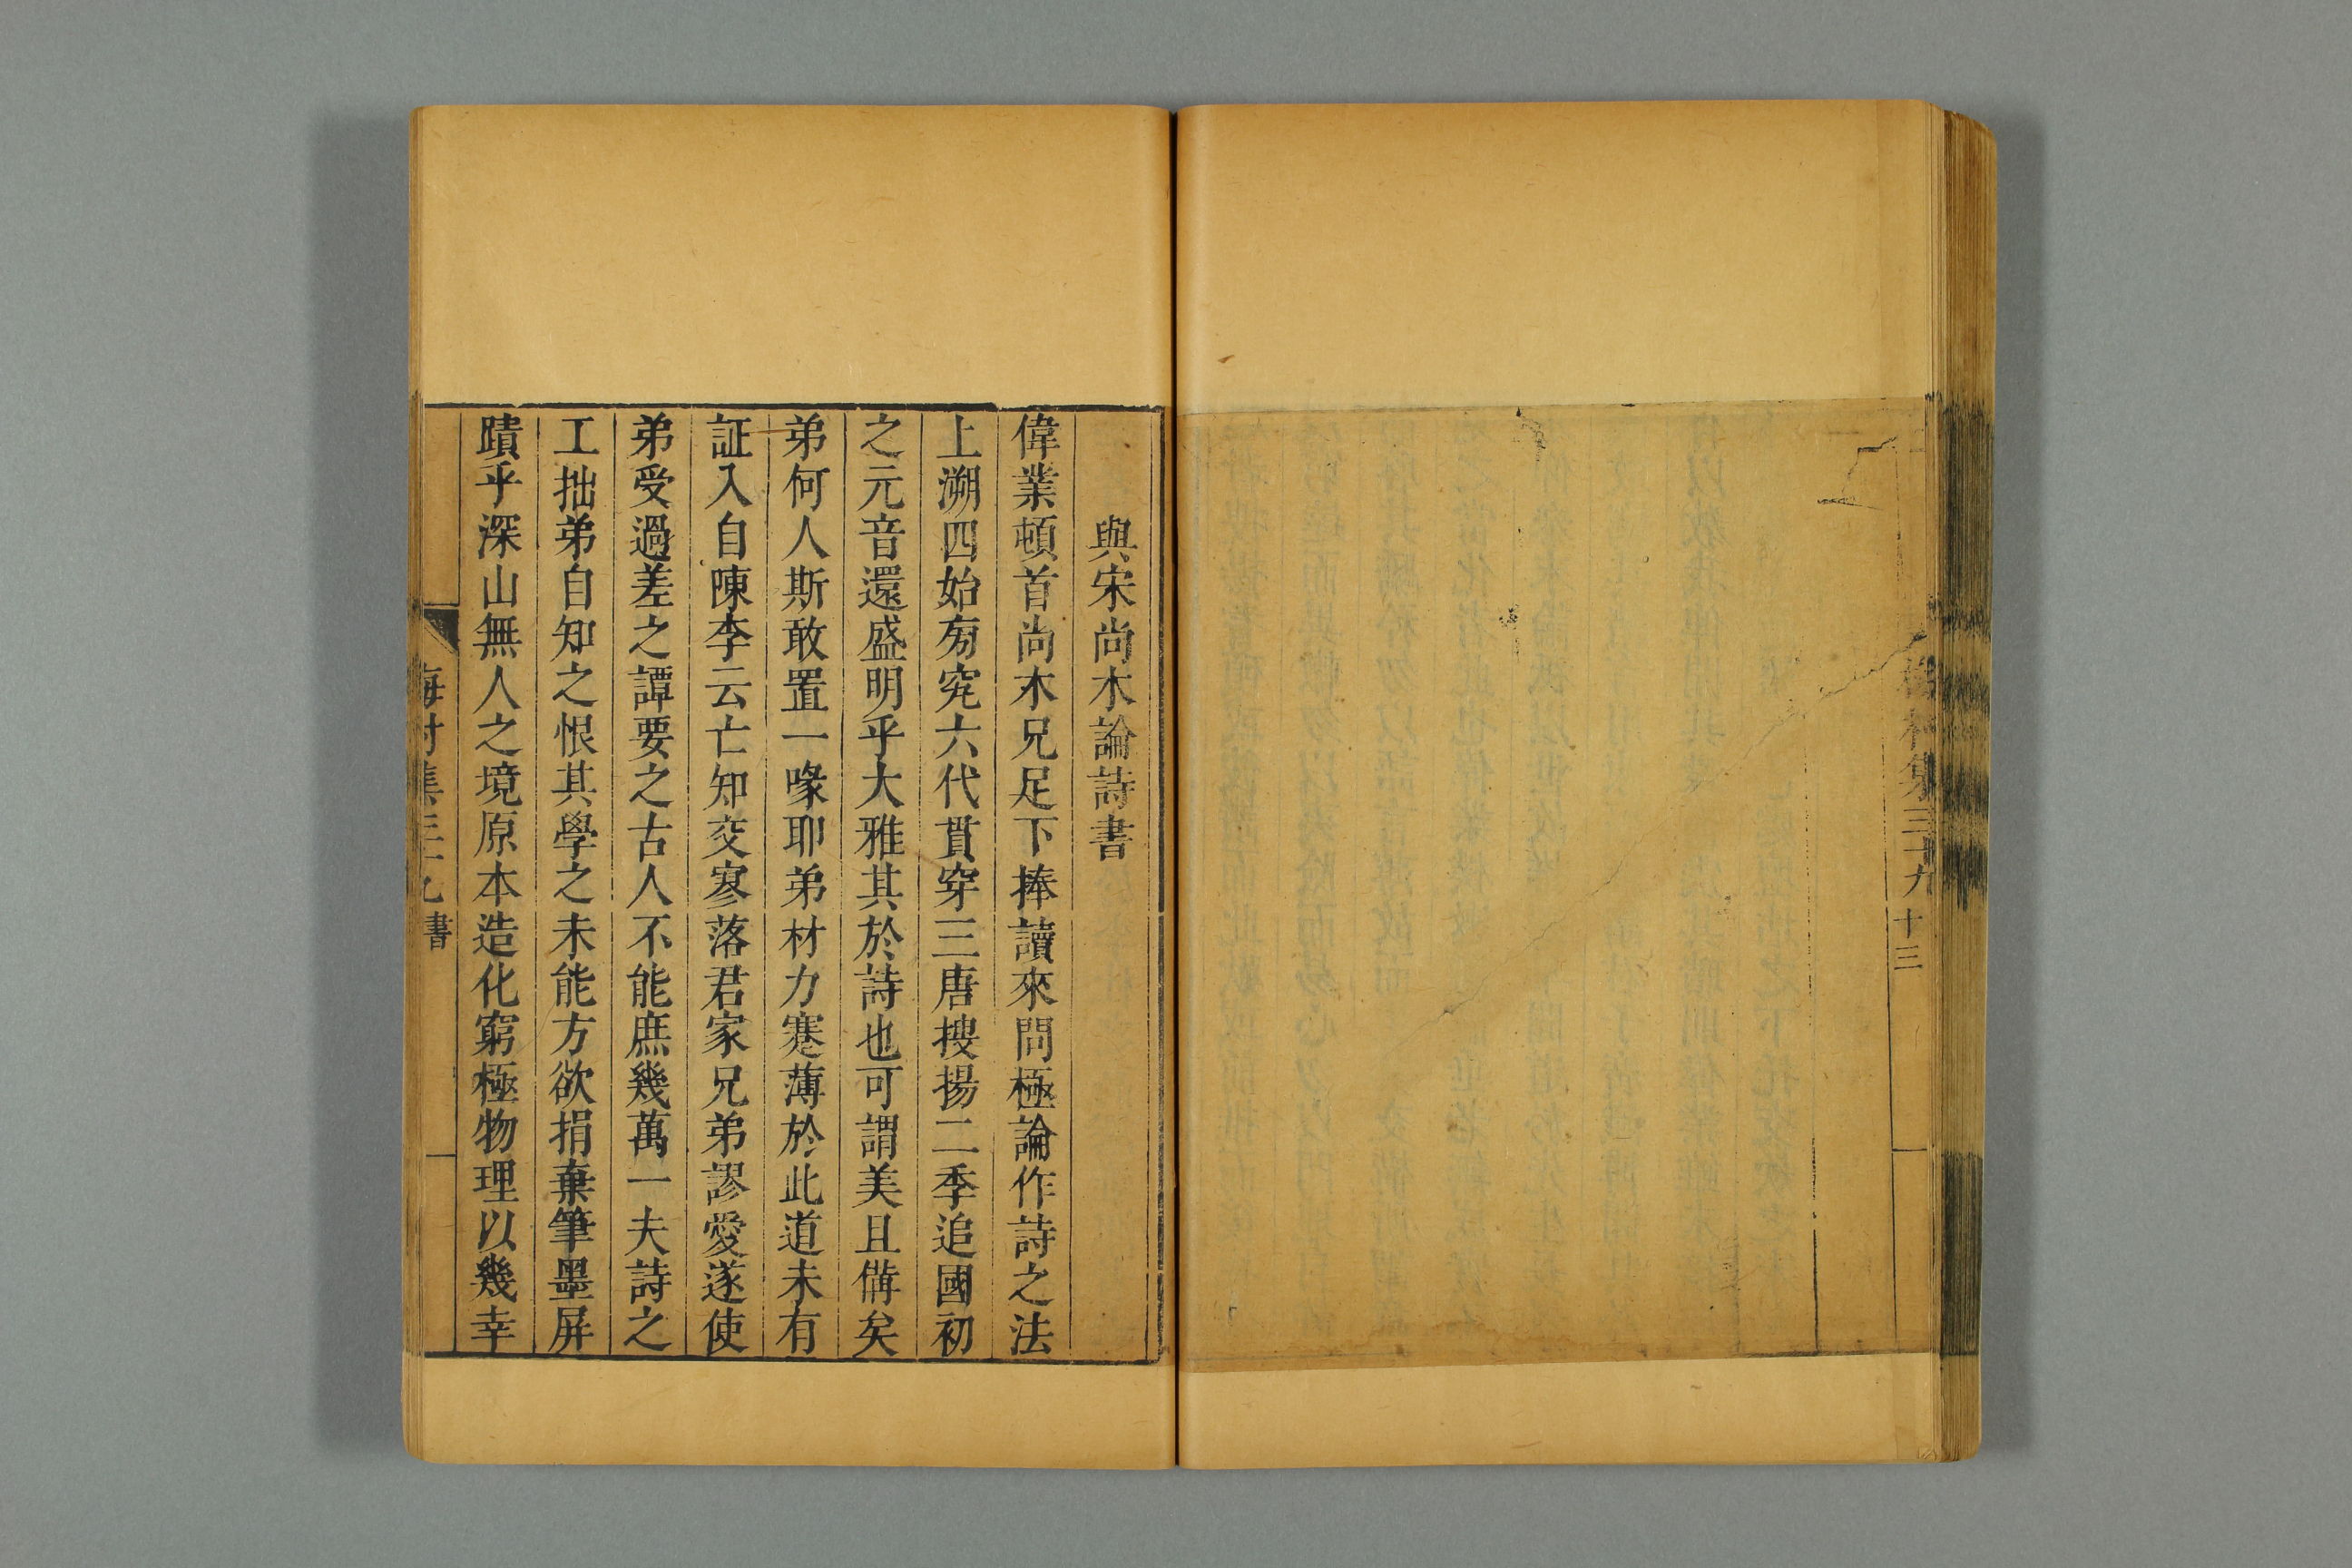 梅村集三十九
十三
與宋尚木論詩書
偉業頓首尚木兄足下捧讀來問極論作詩之法
上溯四始㫄究六代貫穿三唐搜揚二季追國初
之元音還盛明乎大雅其於詩也可謂美且備矣
弟何人斯敢置一喙耶弟材力蹇薄於此道未有
証入自陳李云亡知交寥落君家兄弟謬愛遂使
弟受過差之譚要之古人不能庶幾萬一夫詩之
工拙弟自知之恨其學之未能方欲捐棄筆墨屏
蹟乎深山無人之境原本造化窮極物理以幾幸
梅村集三十九書